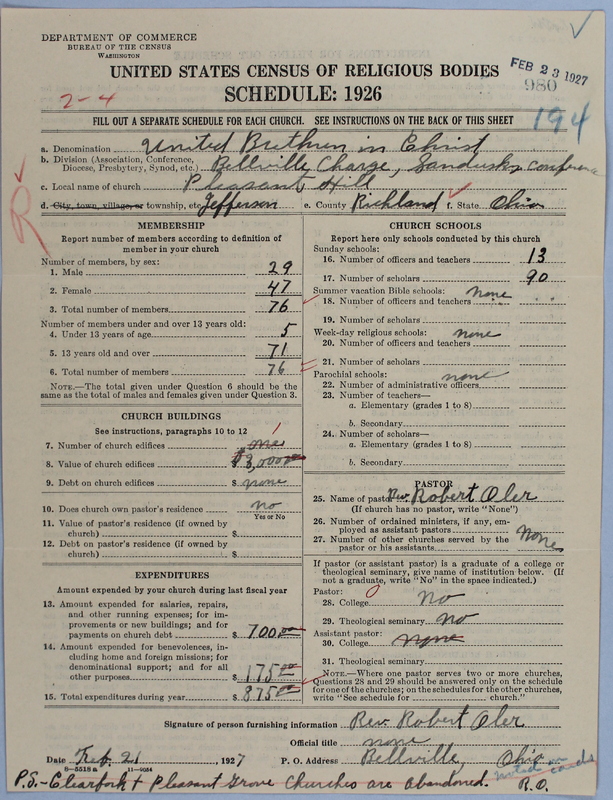 DEPARTMENT OF COMMERCE
BUREAU OF THE CENSUS
WASHINGTON
FEB 23 1927
980
UNITED STATES CENSUS OF RELIGIOUS BODIES
SCHEDULE: 1926
2-4
194
FILL OUT A SEPARATE SCHEDULE FOR EACH CHURCH. SEE INSTRUCTIONS ON THE BACK OF THIS SHEET
a. Denomination United Brethren in Christ
b. Division (Association, Conference, Diocese, Presbytery, Synod, etc.) Bellville Charge, Sandusky Conference
c. Local name of church Pleasant Hill
d. City, town, village, or township, etc. Jefferson e. County Richland f. State Ohio
R
MEMBERSHIP
Report number of members according to definition of
member in your church
Number of members, by sex:
1. Male 29
2. Female 47
3. Total number of members 76
Number of members under and over 13 years old:
4. Under 13 years of age 5
5. 13 years old and over 71
6. Total number of members 76
NOTE.—The total given under Question 6 should be
same as the total of males and females given under Question 3.
CHURCH BUILDINGS
See instructions, paragraphs 10 to 12
7. Number of church edifices one 1
8. Value of church edifices $3,000.00
9. Debt on church edifices $ none
10. Does church own pastor's residence no
Yes or No
11. Value of pastor's residence (if owned by
church) $
12. Debt on pastor's residence (if owned by
church) $
EXPENDITURES
Amount expended by your church during last fiscal year
13. Amount expended for salaries, repairs,
and other running expenses; for im-
provements or new buildings; and for
payments on church debt $ 700.00
14. Amount expended for benevolences, in-
cluding home and foreign missions; for
denominational support; and for all
other purposes $ 175.00
15. Total expenditures during year $ 875.00
CHURCH SCHOOLS
Report here only schools conducted by this church
Sunday schools:
16. Number of officers and teachers 13
17. Number of scholars 90
Summer vacation Bible schools: none
18. Number of officers and teachers
19. Number of scholars
Week-day religious schools: none
20. Number of officers and teachers
21. Number of scholars
Parochial schools: none
22. Number of administrative officers
23. Number of teachers—
a. Elementary (grades 1 to 8)
b. Secondary
24. Number of scholars—
a. Elementary (grades 1 to 8)
b. Secondary
PASTOR
25. Name of pastor Rev. Robert Oler
(If church has no pastor, write "None")
26. Number of ordained ministers, if any, em-
ployed as assistant pastors
27. Number of other churches served by the
pastor or his assistants None
If pastor (or assistant pastor) is a graduate of a college or
theological seminary, give name of institution below. (If
not a graduate, write "No" in the space indicated.)
Pastor: 0
28. College no
29. Theological seminary no
Assistant pastor:
30. College none
31. Theological seminary
NOTE.—Where one pastor serves two or more churches,
Questions 28 and 29 should be answered only on the schedule
for one of the churches; on the schedules for the other churches,
write "See schedule for church."
Signature of person furnishing information Rev. Robert Oler
Official title none
Date Feb. 21 1927 P. O. Address Bellville, Ohio
8-5518 a 11-9054
noted on cards
P.S.- Clearfork + Pleasant Grove Churches are abandoned. R.O.